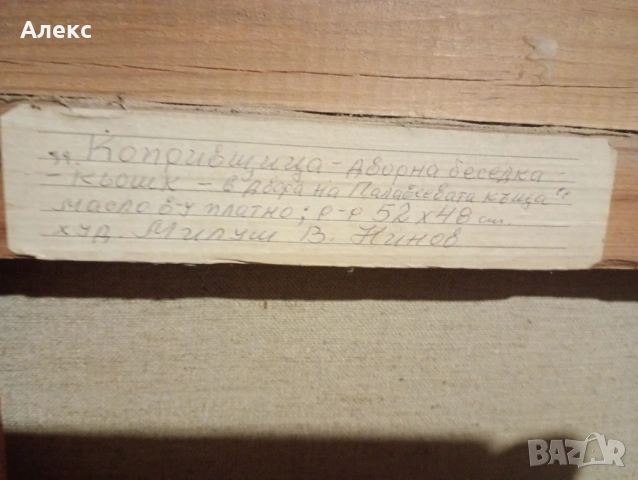 Алекс
„Копривщица - дворна беседка -
- кьошк - в двора на Палавеевата къща“
масло в/у платно; р-р 52 х 48 см.
худ Милуш В. Нинов
BAZAR